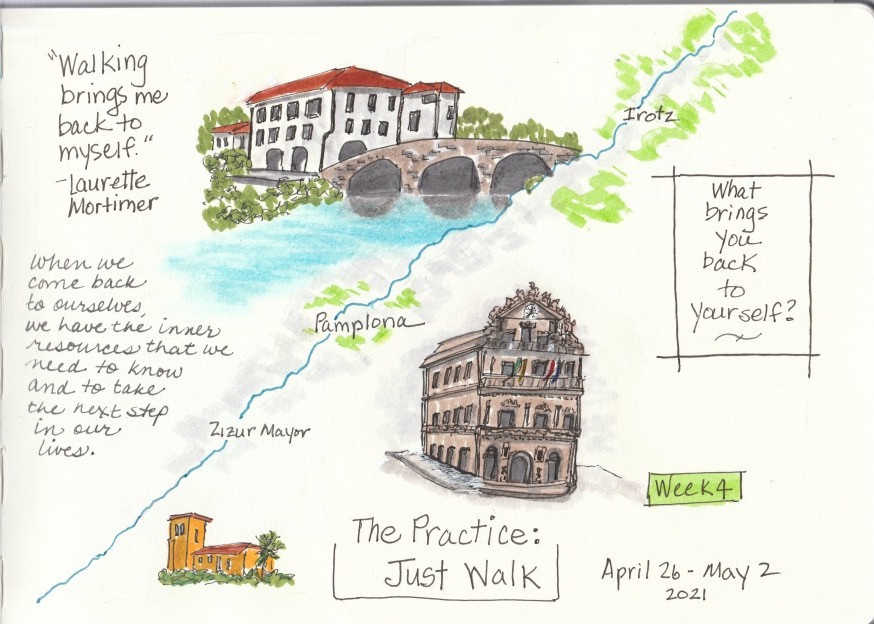 "Walking
brings me
back to
myself."
-Laurette
Mortimer
When we
come back
to ourselves,
we have the inner
resources that we
need to know
and to take
the next step
in our
lives.
Irotz
Pamplona
Zizur Mayor
What
brings
you
back
to
yourself?
Week 4
The Practice:
Just Walk
April 26 - May 2
2021